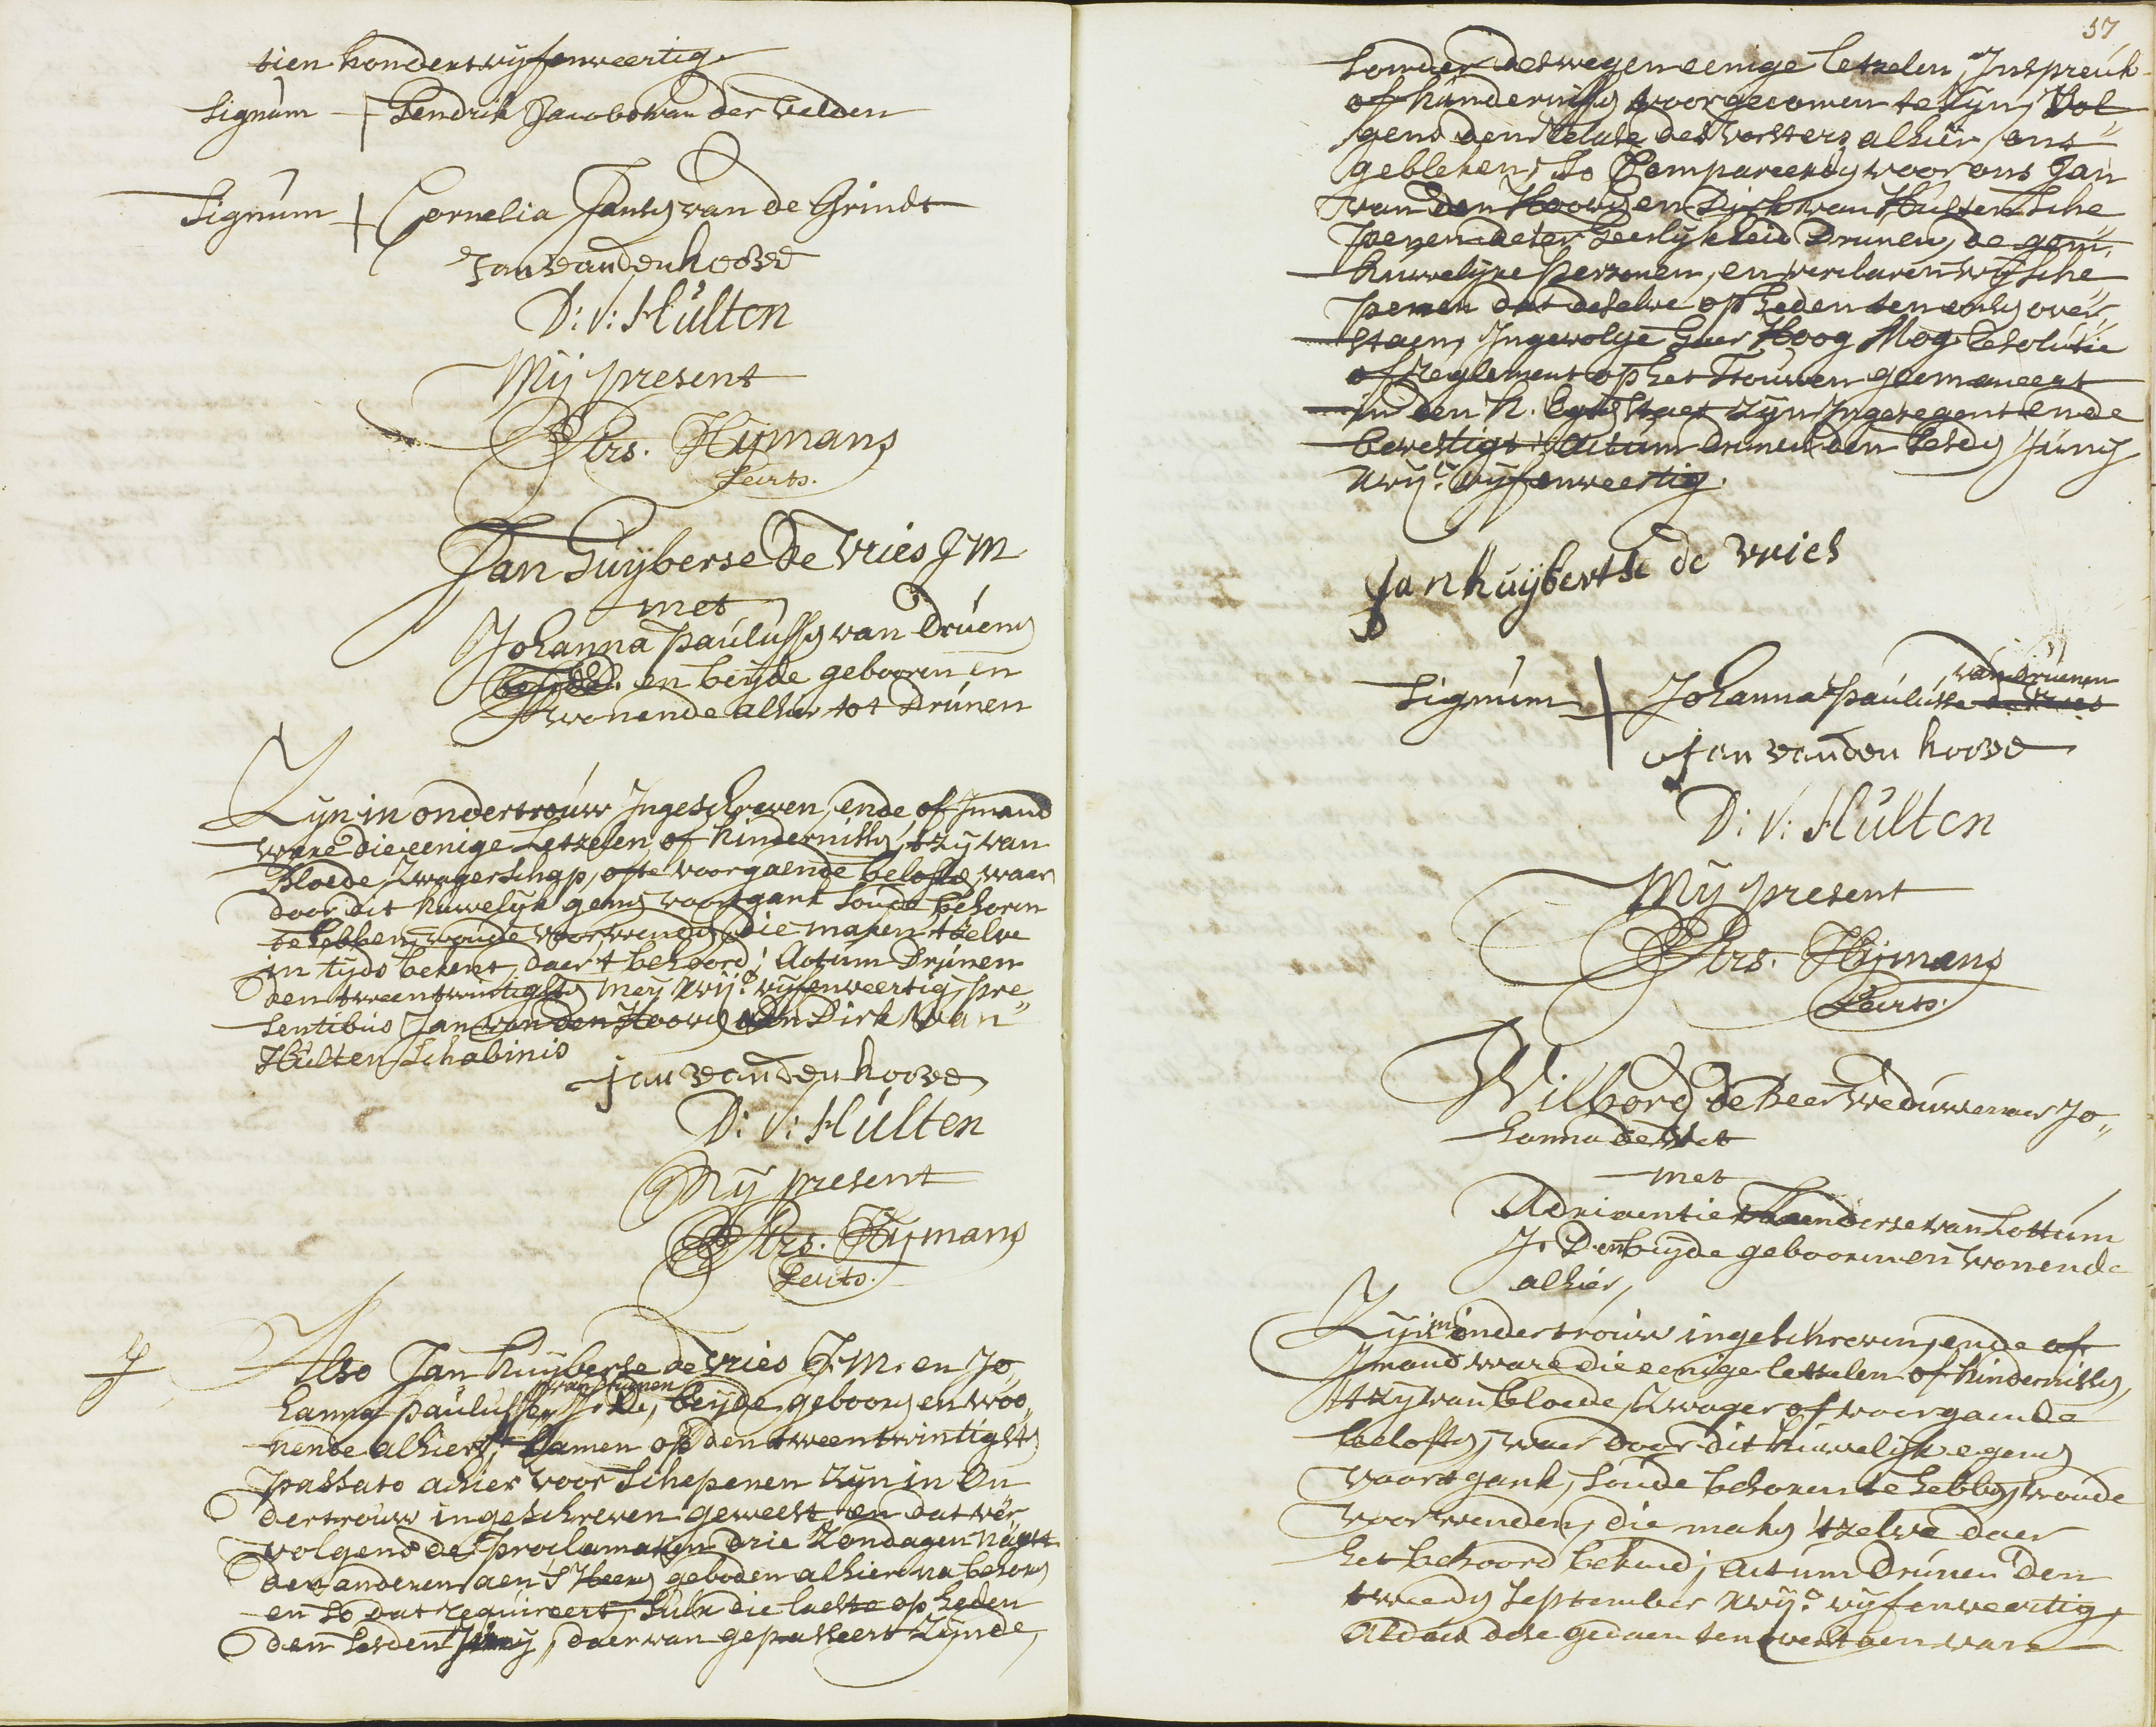 tien hondert vyfenveertig
Signum Hendrik Jacobs van der Velden
Signum Cornelia Janse van de Grindt
Jan van den hoove
D: V: Hulten
Mij present
Heijmans
Secrts.
Jan Huijberse de Vries J M
met
Johanna Paulusse van Druenen
en beijde geboren en
wonende alhier tot Drunen
Zyn in ondertrouw Ingeschreven, ende of Jmand
ware die eenige Letzelen of hindernisse, 't zy van
Bloede, Zwagerschap, ofte voorgaende belofte waer
door dit huwelijk geen voortgank soude behoren
te hebben, woude voorwenden, die maken 't zelve
in tyds bekent, daer 't behoord; Actum Drunen
den tweentwintigste Meij XVIJc vyfenveertig, pre
sentibus Jan van den Hoove en Dirk van
Hulten Schabinis
Jan van den hoove
D: V: Hulten
Mij present
Heijmans
Secrts.
Also Jan Huijberse de Vries J. M. en Jo
hanna Paulusse van Drunen J. D., beijde geboren en woo
nende alhier, samen op den tweentwintigste
passato alhier voor Schepenen zyn in On
dertrouw ingeschreven geweest en dat ver
volgens de proclamatien drie Zondagen naest
den anderen aen 's Heeren geboden alhier na behoren
en so dat requireert, sulx die laeste op heden
den sesden Junij, daer van gepasseert zynde,
57
sonder deswegen eenige letzelen, Inspreuk
of hindernisse voorgecomen te zyn, Vol
gens den relate des Vorsters alhier, ons
gebleken, So Compareerden voor ons Jan
van den Hoove en Dirk van Hulten Sche
penen deser Heerlykheid Drunen, de gem.
huwelyxe personen, en verclaren wy Sche
penen dat deselve op heden ten onsen over
staen, Ingevolge Haer Hoog Mog. Resolutie
of Reglement op het Trouwen geemaneert
in den H. Egten staet zyn Ingesegent ende
bevestigt; Actum Drunen den sesden Junij
XVIJc vyfenveertig.
Jan huijbertse de vries
Signum Johanna Paulusse van druenen
Jan van den hoove
D: V: Hulten
Mij present
Heijmans
Secrts.
Wilbord de Beer Weduwenaer Jo
hanna
met
Adriaentie van Lottum
J. D. en beijde geboren en wonende
alhier,
Zyn in ondertrouw ingeschreven, ende of
Jmand ware die eenige letselen of hindernisse,
't zy van bloede, Zwager of voorgaende
belofte, waer door dit huwelijk geen
voortgank, soude behoren te hebben, woude
voorwenden, die maken 't zelve daer
het behoord bekend; Actum Drunen den
tweeden September XVIJc vyfenveertig,
Aldus dese gedaen ten overstaen van